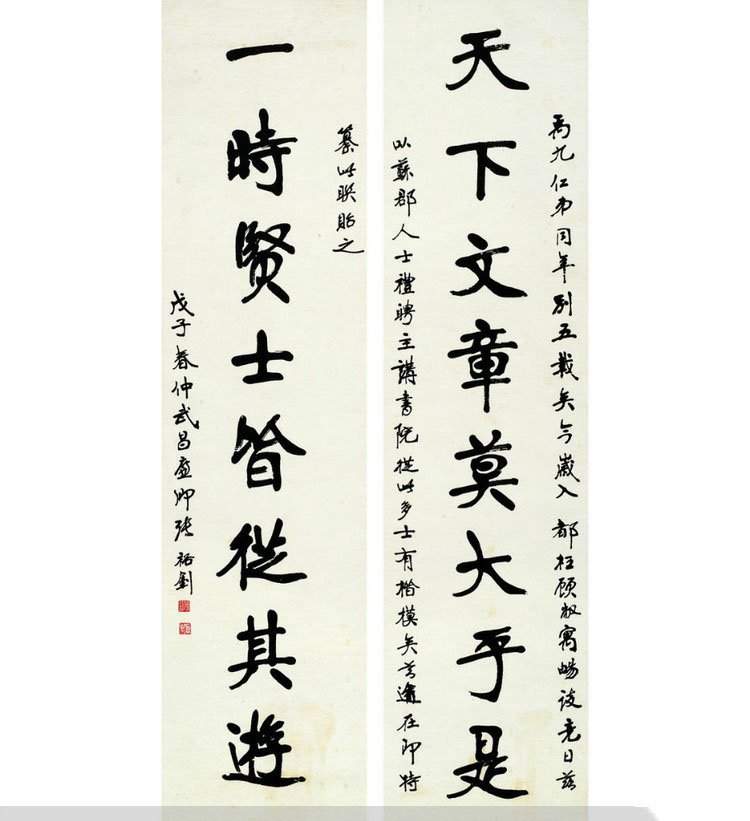 禹九仁弟同年別五載矣今歲入 都枉顧敝寓暢談竟日茲
天下文章莫大乎是
以蘇郡人士禮聘主講書院從此多士有楷模矣首途在即特
纂此聯貽之
一時賢士皆從其遊
戊子春仲武昌廉卿張裕釗